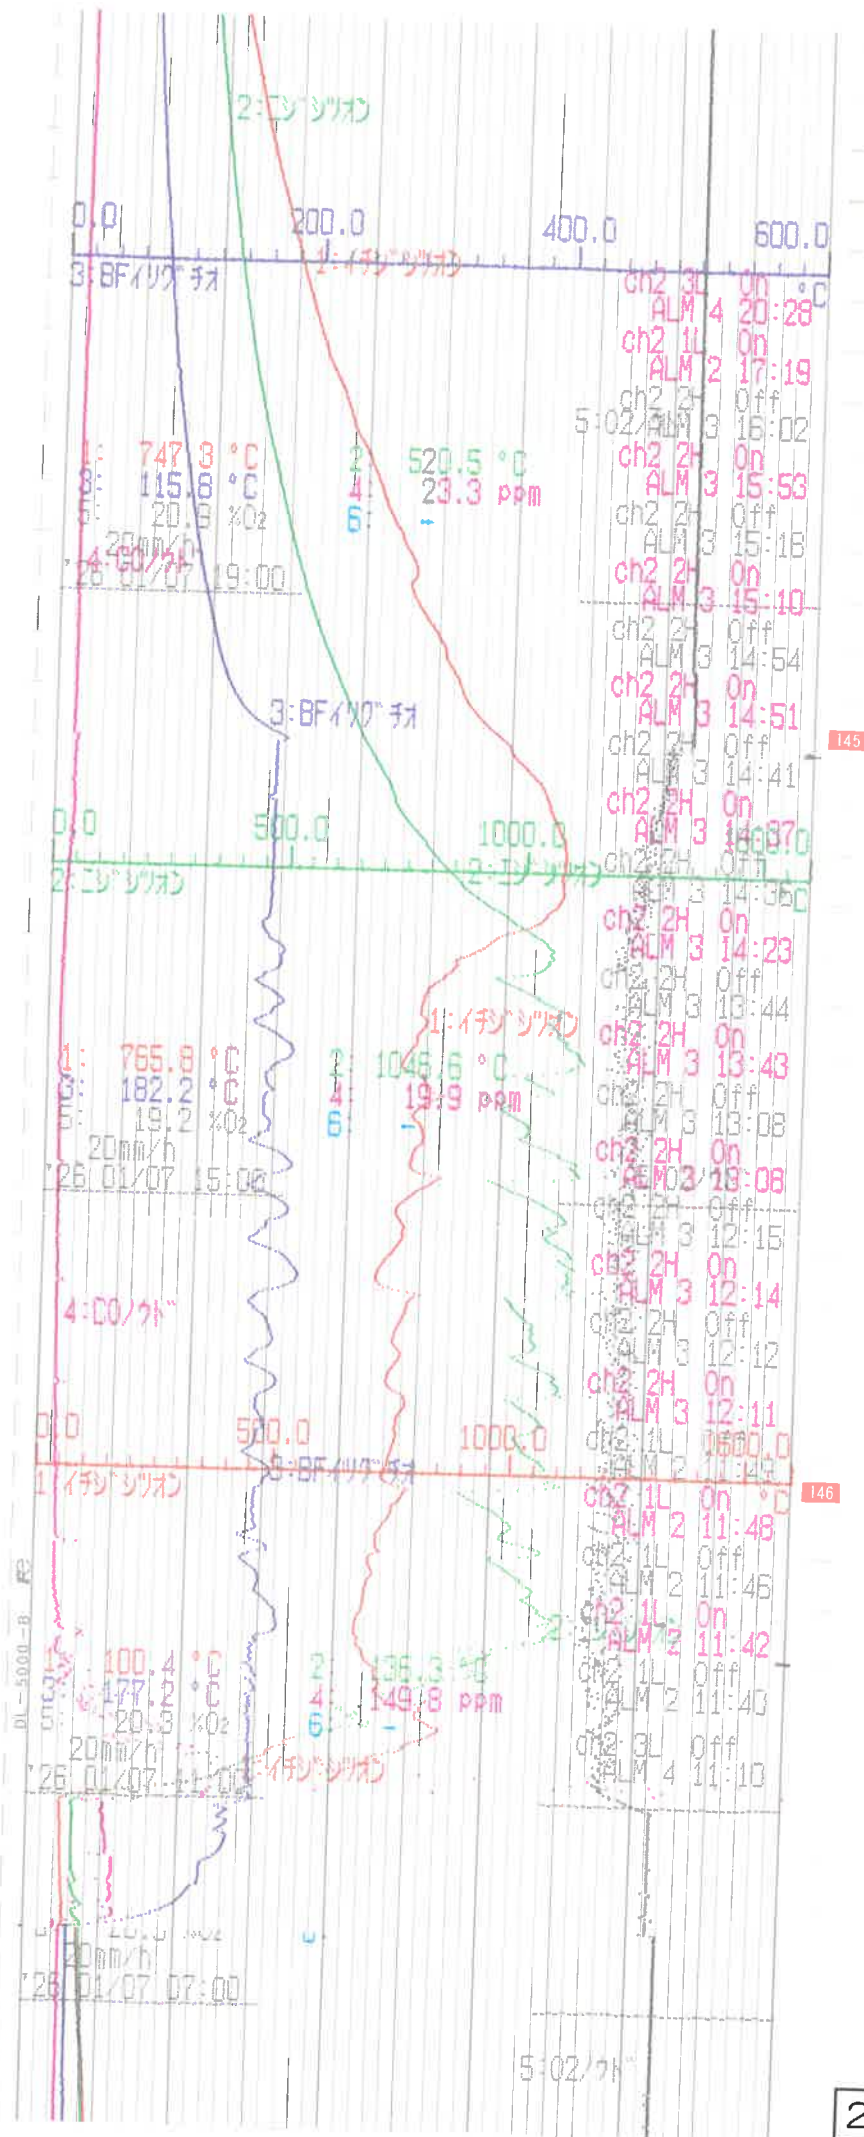 2:ニジシツオン
0.0 200.0 400.0 600.0
3:BFイリグチオ 1:イチジシツオン °C
ch2 3L On
ALM 4 20:28
ch2 1L On
ALM 2 17:19
ch2 2H Off
ALM 3 16:02
ch2 2H On
ALM 3 15:53
ch2 2H Off
ALM 3 15:18
ch2 2H On
ALM 3 15:10
ch2 2H Off
ALM 3 14:54
ch2 2H On
ALM 3 14:51
ch2 2H Off
ALM 3 14:41
ch2 2H On
ALM 3 14:37
ch2 2H Off
ALM 3 14:36
ch2 2H On
ALM 3 14:23
ch2 2H Off
ALM 3 13:44
ch2 2H On
ALM 3 13:43
ch2 2H Off
ALM 3 13:08
ch2 2H On
13:08
ch2 2H Off
ALM 3 12:15
ch2 2H On
ALM 3 12:14
ch2 2H Off
ALM 3 12:12
ch2 2H On
ALM 3 12:11
ch2 1L
ALM 2
ch2 1L On
ALM 2 11:48
ch2 1L Off
ALM 2 11:46
ch2 1L On
ALM 2 11:42
ch2 1L Off
ALM 2 11:40
ch2 3L Off
ALM 4 11:10
1: 747.3 °C 2: 520.5 °C
3: 115.8 °C 4: 23.3 ppm
5: 20.9 %O2 6: -
20mm/h
4:CO/ウド
'26 01/07 19:00
3:BFイリグチオ
145
0.0 500.0 1000.0
2:ニジシツオン 2:ニジシツオン °C
1:イチジシツオン
1: 765.8 °C 2: 1045.6 °C
3: 182.2 °C 4: 19.9 ppm
5: 19.2 %O2 6: -
20mm/h
'26 01/07 15:00
4:CO/ウド
0.0 500.0 1000.0
1:イチジシツオン 3:BFイリグチオ °C
146
DL-5000-B
1: 100.4 °C 2: 136.3 °C
3: 177.2 °C 4: 149.8 ppm
20.3 %O2 6: -
20mm/h
'26 01/07 11:00
イチジシツオン
20mm/h
'26 01/07 07:00
5:O2/ウド
2